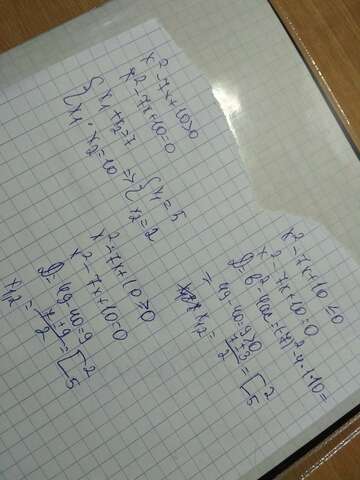 x² - 7x + 10 > 0
x² - 7x + 10 = 0
{ x₁ + x₂ = 7
{ x₁ · x₂ = 10 ⇒ { x₁ = 5
{ x₂ = 2
x² - 7x + 10 > 0
x² - 7x + 10 = 0
D = 49 - 40 = 9
x₁,₂ = 7 ± 9 / 2 = [ 2
5
x² - 7x + 10 ≤ 0
x² - 7x + 10 = 0
D = b² - 4ac = (-7)² - 4 · 1 · 10 =
= 49 - 40 = 9 > 0
x₁,₂ = 7 ± 3 / 2 = [ 2
5